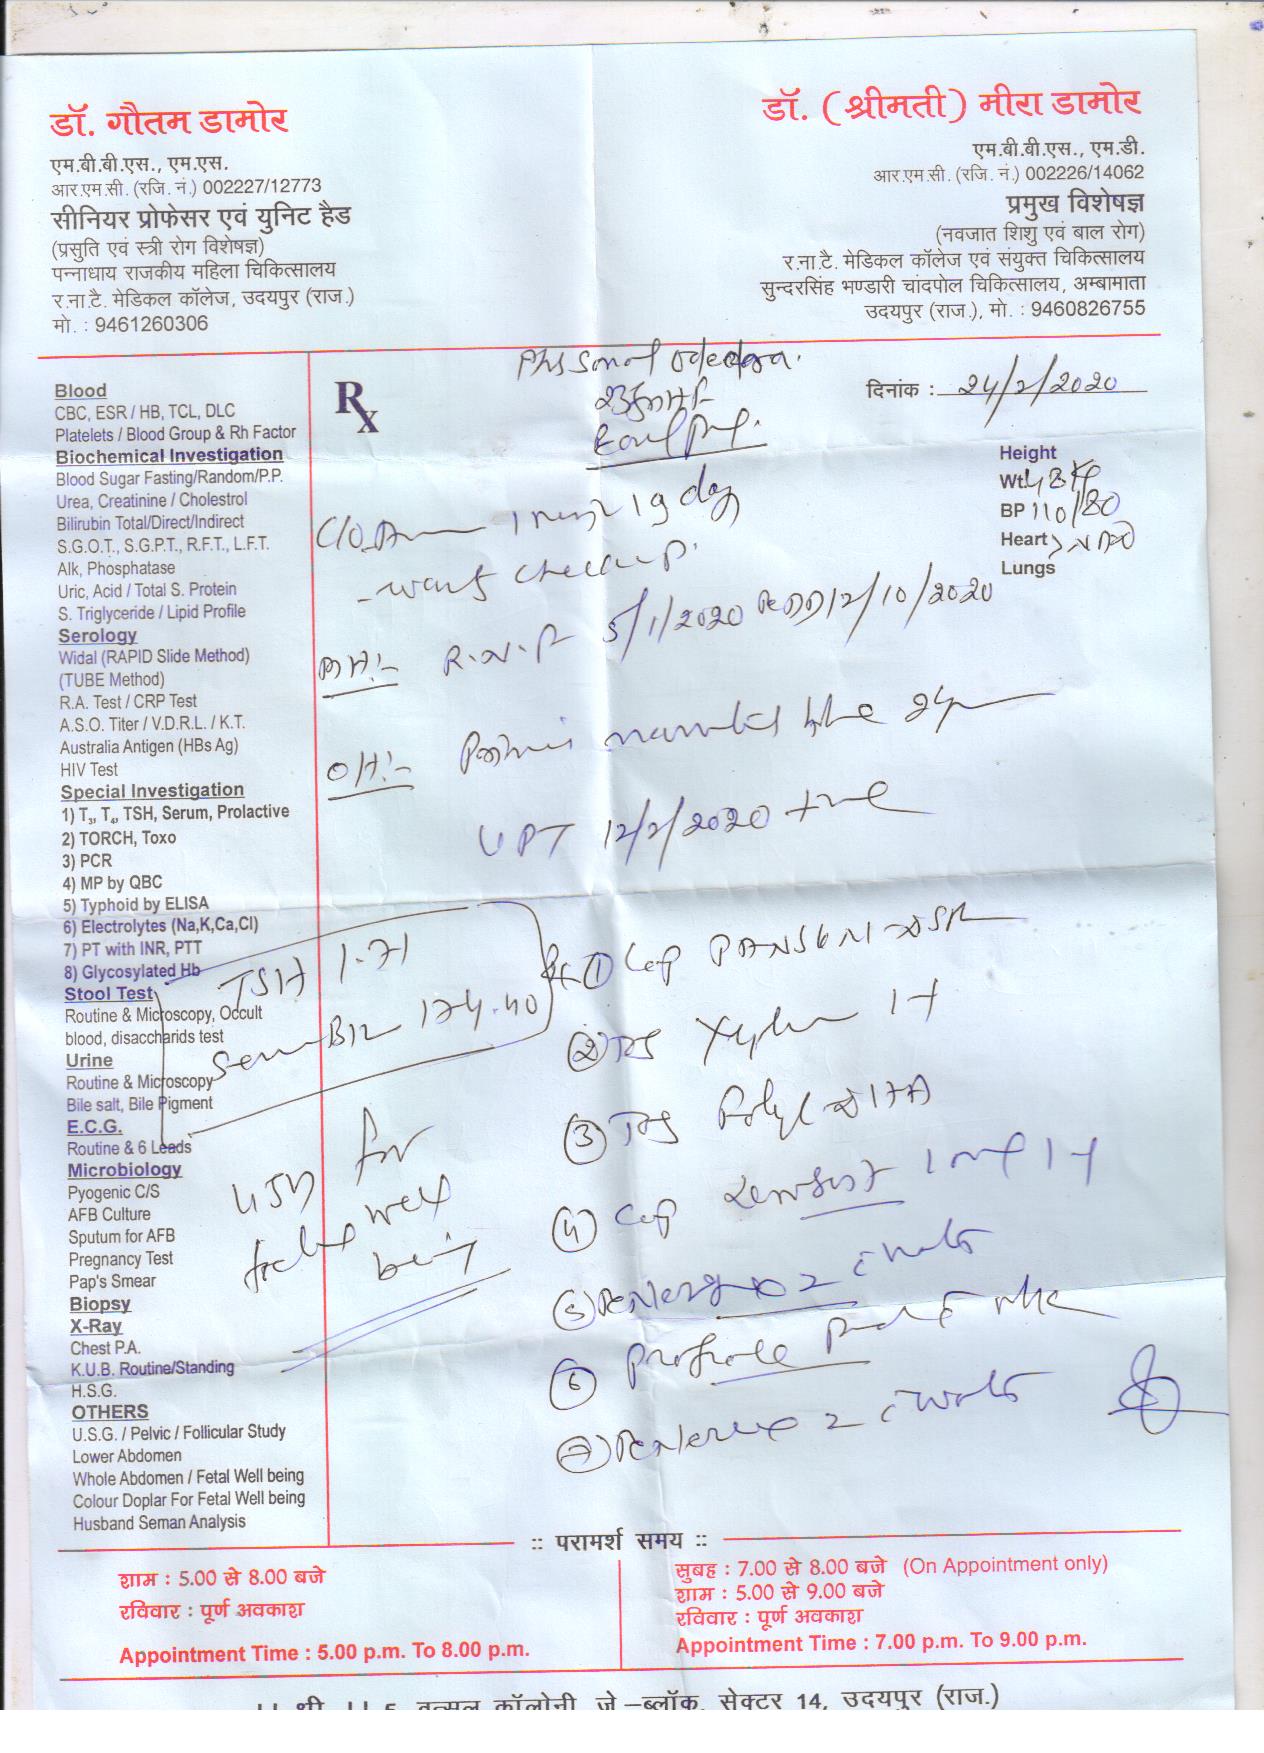 डॉ. गौतम डामोर
एम.बी.बी.एस., एम.एस.
आर.एम.सी. (रजि. नं.) 002227/12773
सीनियर प्रोफेसर एवं युनिट हैड
(प्रसुति एवं स्त्री रोग विशेषज्ञ)
पन्नाधाय राजकीय महिला चिकित्सालय
र.ना.टै. मेडिकल कॉलेज, उदयपुर (राज.)
मो. : 9461260306
डॉ. (श्रीमती) मीरा डामोर
एम.बी.बी.एस., एम.डी.
आर.एम.सी. (रजि. नं.) 002226/14062
प्रमुख विशेषज्ञ
(नवजात शिशु एवं बाल रोग)
र.ना.टै. मेडिकल कॉलेज एवं संयुक्त चिकित्सालय
सुन्दरसिंह भण्डारी चांदपोल चिकित्सालय, अम्बामाता
उदयपुर (राज.), मो. : 9460826755
Rx
दिनांक : 24/2/2020
Height
Wt 48 Kg
BP 110/80
Heart
Lungs
Blood
CBC, ESR / HB, TCL, DLC
Platelets / Blood Group & Rh Factor
Biochemical Investigation
Blood Sugar Fasting/Random/P.P.
Urea, Creatinine / Cholestrol
Bilirubin Total/Direct/Indirect
S.G.O.T., S.G.P.T., R.F.T., L.F.T.
Alk, Phosphatase
Uric, Acid / Total S. Protein
S. Triglyceride / Lipid Profile
Serology
Widal (RAPID Slide Method)
(TUBE Method)
R.A. Test / CRP Test
A.S.O. Titer / V.D.R.L. / K.T.
Australia Antigen (HBs Ag)
HIV Test
Special Investigation
1) T3, T4, TSH, Serum, Prolactive
2) TORCH, Toxo
3) PCR
4) MP by QBC
5) Typhoid by ELISA
6) Electrolytes (Na,K,Ca,Cl)
7) PT with INR, PTT
8) Glycosylated Hb
Stool Test
Routine & Microscopy, Occult
blood, disaccharids test
Urine
Routine & Microscopy
Bile salt, Bile Pigment
E.C.G.
Routine & 6 Leads
Microbiology
Pyogenic C/S
AFB Culture
Sputum for AFB
Pregnancy Test
Pap's Smear
Biopsy
X-Ray
Chest P.A.
K.U.B. Routine/Standing
H.S.G.
OTHERS
U.S.G. / Pelvic / Follicular Study
Lower Abdomen
Whole Abdomen / Fetal Well being
Colour Doplar For Fetal Well being
Husband Seman Analysis
C/O 19 day
- want checkup.
MH:- 5/1/2020 EDD 12/10/2020
OH:-
UPT 12/2/2020 +ve
TSH 1.71
Serum B12 174.40
USG for
fetal well
being
Rx ① Cap PAN DSR
②
③
④ Cap
⑤
⑥
⑦
:: परामर्श समय ::
शाम : 5.00 से 8.00 बजे
रविवार : पूर्ण अवकाश
Appointment Time : 5.00 p.m. To 8.00 p.m.
सुबह : 7.00 से 8.00 बजे (On Appointment only)
शाम : 5.00 से 9.00 बजे
रविवार : पूर्ण अवकाश
Appointment Time : 7.00 p.m. To 9.00 p.m.
5, वत्सल कॉलोनी, जे –ब्लॉक, सेक्टर 14, उदयपुर (राज.)